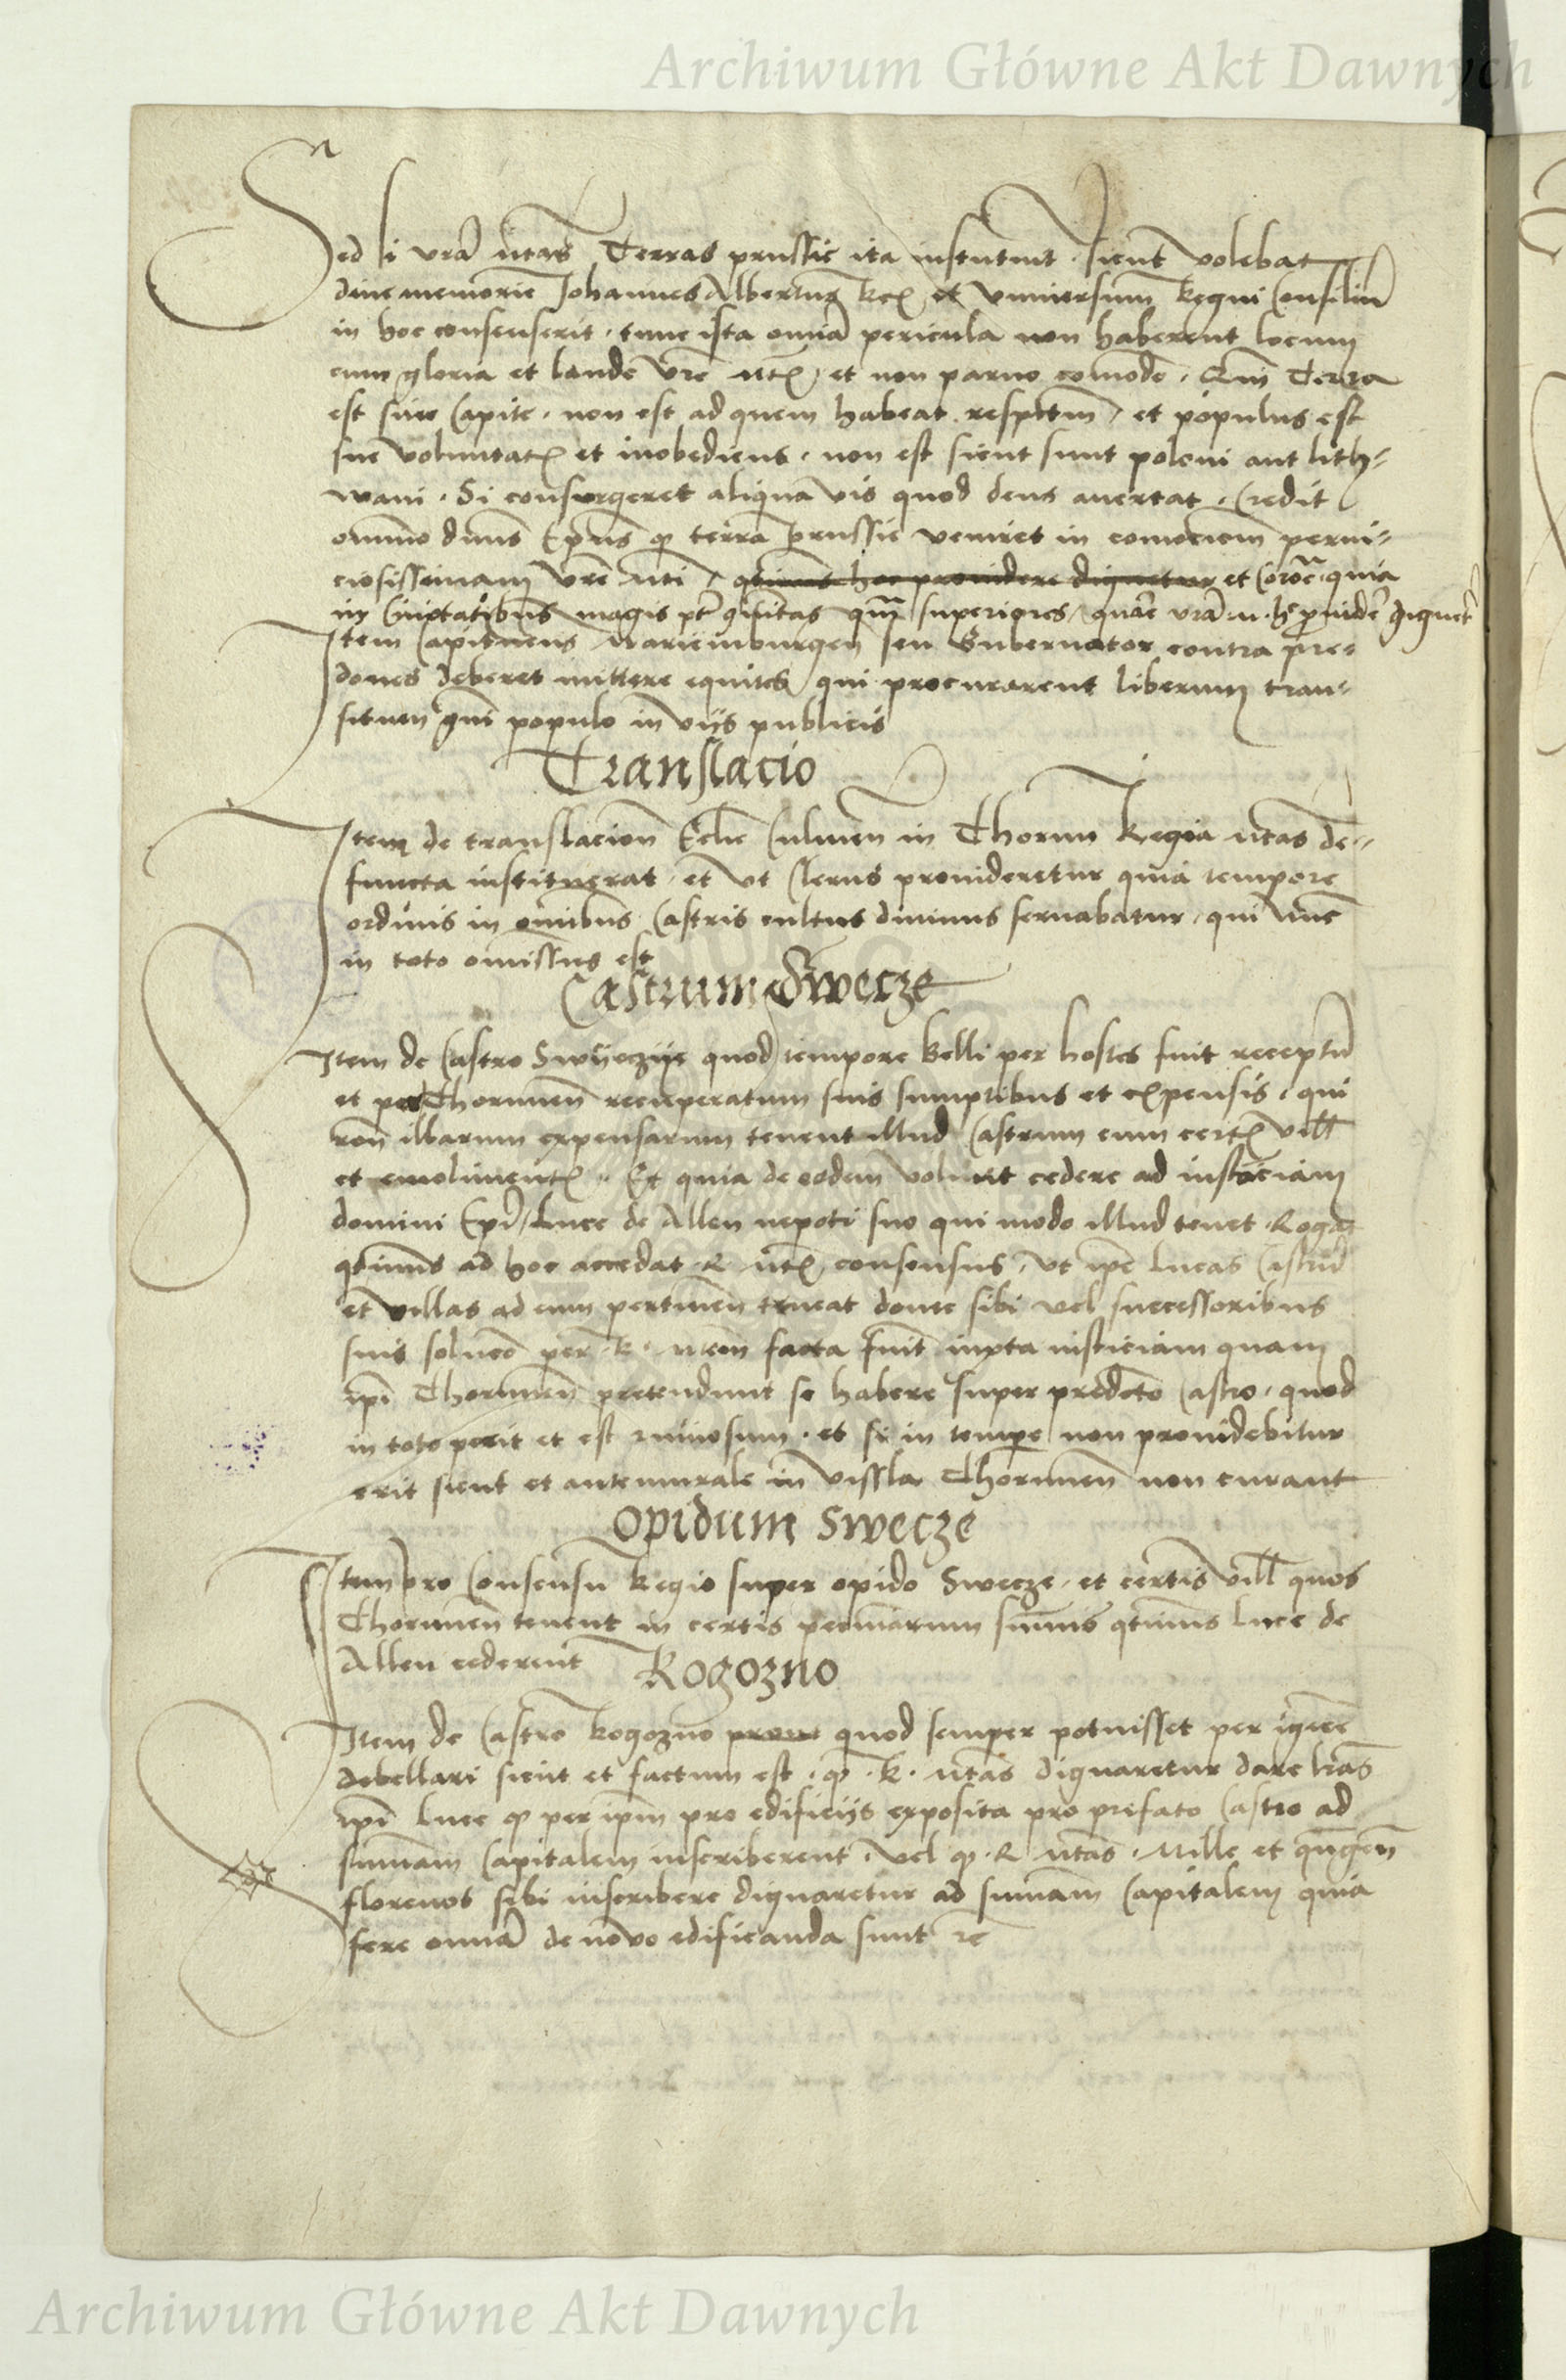 Archiwum Główne Akt Dawnych
Sed si vra mtas Terras prussie ita instituit sicut volebat
dive memorie Johannes Albertus Rex et universum Regni Consiliu
in hoc consenserit tunc ista omia pericula non haberent locum
cum gloria et laude vre mtis et non parvo comodo Qm Terra
est sine Capite non est ad quem habeat respctm et populus est
sue voluntatis et inobediens non est sicut sunt poloni aut lith-
wani Si consurgeret aliqua vis quod deus avertat Credit
omnino dnus Epus q terra prussie veniret in comocionem perni-
ciosissimam vre mti qtinus hoc providere dignetur et quia
magis superiores quare vra m h providere dignet
Item Capitneus Marienburgen seu Gubernator contra pre-
dones deberet mittere equites qui procurarent liberum tran-
situm populo in viis publicis
Translacio
Item de translacion Eclie Culmen in Thorun Regia mtas de-
functa instituerat et ut Clerus provideretur quia tempore
ordinis in omibus Castris cultus divinus servabatur qui nuc
in toto omissus est
Castrum Swecze
Item de Castro Swyeczye quod tempore belli per hostes fuit receptu
et per Thorunen recuperatum suis sumptibus et expensis qui
ron illarum expensarum tenent illud Castrum cum certis vill
et emolimentis Et quia de eodem volunt cedere ad insticiam
domini Epi Luce de Allen nepoti suo qui modo illud tenet Rogat
qtinus ad hoc accedat R mtis consensus ut ipe Lucas Castru
et villas ad eum pertinen teneat donec sibi vel successoribus
suis soluco per R mtem facta fuit iuxta iusticiam quam
ipi Thorunen pretendunt se habere super predcto Castro quod
in toto perit et est ruinosum et si in tempe non providebitur
erit sicut et antemurale in vissla Thorunen non curant
Opidum Swecze
Item pro Consensu Regio super opido Swecze et certis vill quos
Thorunen tenent in certis pecuniarum sumis qtinus Luce de
Allen cederent
Rogozno
Item de Castro Rogozno quod semper potuisset per ignem
debellari sicut et factum est q R mtas dignaretur dare lras
ipi Luce q per ipm pro edificiis exposita pro prefato Castro ad
sumam Capitalem inscriberent vel q R mtas Mille et qngen
florenos sibi inscribere dignaretur ad sumam Capitalem quia
fere omia de novo edificanda sunt rc
Archiwum Główne Akt Dawnych